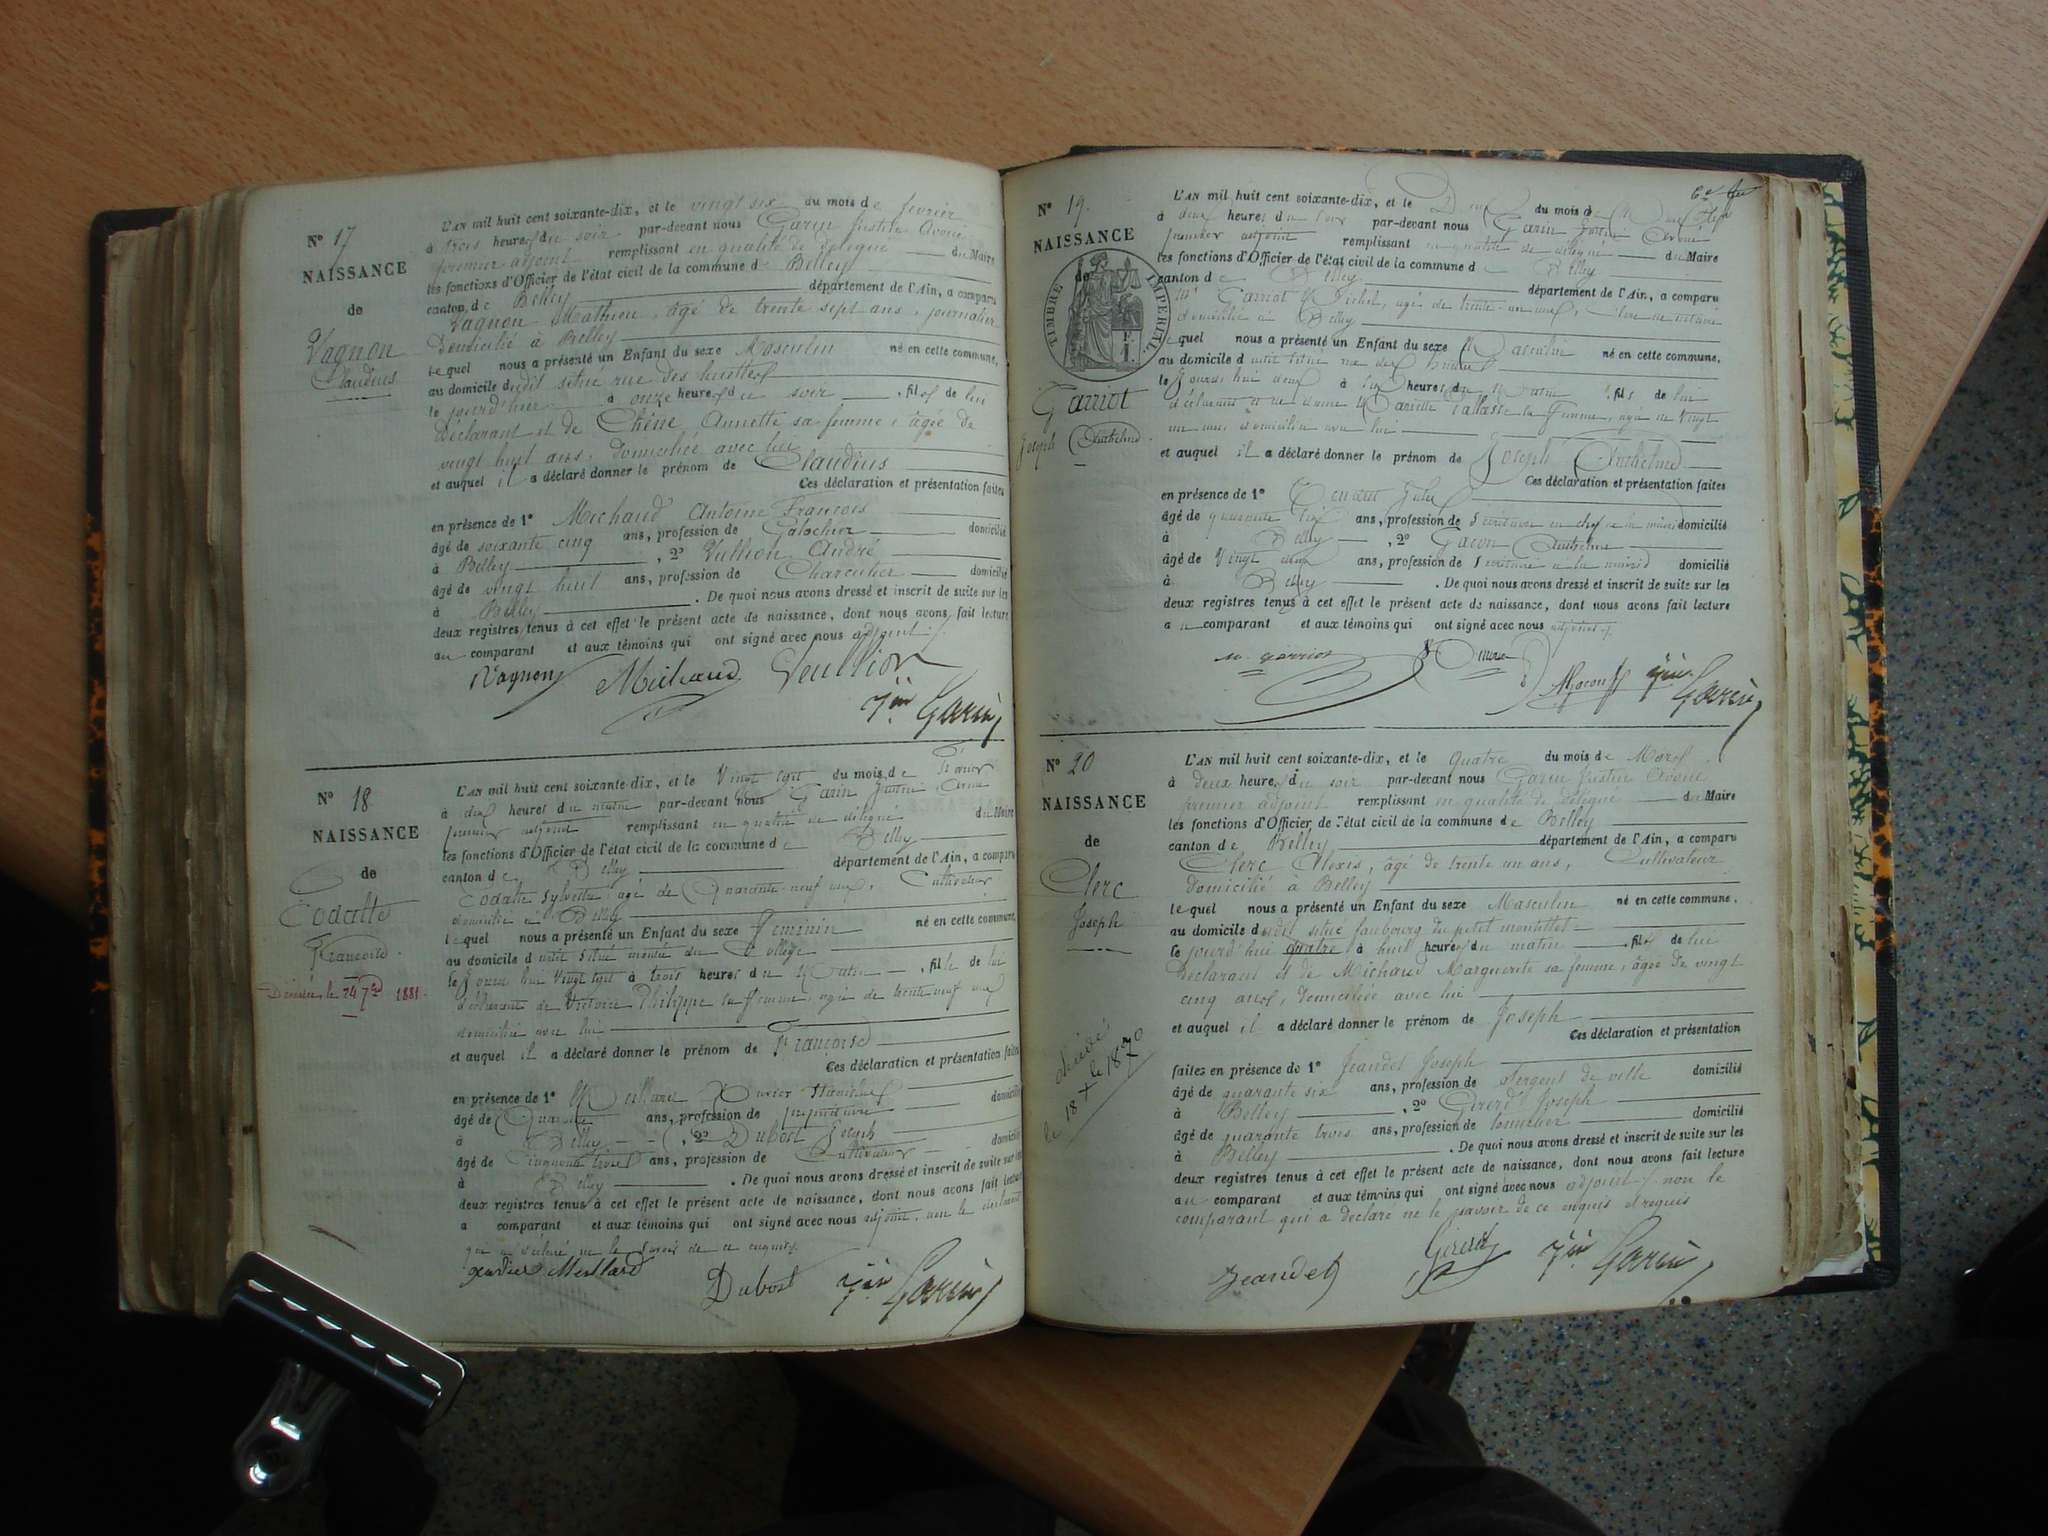 N° 17
NAISSANCE
de
Vagnon
Claudius
L'AN mil huit cent soixante-dix, et le vingt six du mois de février
à trois heures du soir par-devant nous Garin Justin Avoué
premier adjoint remplissant en qualité de délégué du Maire
les fonctions d'Officier de l'état civil de la commune de Belley
canton de Belley département de l'Ain, a comparu
Vagnon Mathieu, âgé de trente sept ans, journalier
Domicilié à Belley
lequel nous a présenté un Enfant du sexe Masculin né en cette commune,
au domicile dudit situé rue des
le jourd'hier à onze heures du soir, fils de lui
Déclarant et de Chêne Annette sa femme, âgée de
vingt huit ans, domiciliée avec lui
et auquel il a déclaré donner le prénom de Claudius
Ces déclaration et présentation faites
en présence de 1° Michaud Antoine François
âgé de soixante cinq ans, profession de Galochier domicilié
à Belley, 2° Vullion André
âgé de vingt huit ans, profession de Charcutier domicilié
à Belley. De quoi nous avons dressé et inscrit de suite sur les
deux registres tenus à cet effet le présent acte de naissance, dont nous avons fait lecture
au comparant et aux témoins qui ont signé avec nous adjoint
Vagnon Michaud Veullion
Jin Garin
N° 18
NAISSANCE
de
Codalte
Françoise
1881
L'AN mil huit cent soixante-dix, et le Vingt sept du mois de Février
à dix heures du matin par-devant nous Garin Justin Avoué
premier adjoint remplissant en qualité de délégué du Maire
les fonctions d'Officier de l'état civil de la commune de Belley
canton de Belley département de l'Ain, a comparu
Codalte Sylvestre, âgé de Quarante neuf ans, Cultivateur
domicilié à Belley
lequel nous a présenté un Enfant du sexe Féminin né en cette commune,
au domicile dudit situé montée du Collège
le Jourd'hui Vingt sept à trois heures du Matin, fille de lui
déclarant et de Victoire Philippe sa femme, agée de trente neuf ans
domiciliée avec lui
et auquel il a déclaré donner le prénom de Françoise
Ces déclaration et présentation faites
en présence de 1° Meillard Xavier
âgé de Quarante ans, profession de domicilié
à Belley, 2° Dubost Joseph
âgé de Cinquante ans, profession de Cultivateur domicilié
à Belley. De quoi nous avons dressé et inscrit de suite sur les
deux registres tenus à cet effet le présent acte de naissance, dont nous avons fait lecture
a comparant et aux témoins qui ont signé avec nous adjoint, non le déclarant
qui a déclaré ne le savoir de ce enquis
Xavier Meillard Dubost Jin Garin
N° 19.
NAISSANCE
de
TIMBRE IMPERIAL
Garriot
Joseph Anthelme
L'AN mil huit cent soixante-dix, et le Deux du mois de Mars
à deux heures du soir par-devant nous Garin Justin Avoué
premier adjoint remplissant en qualité de délégué du Maire
les fonctions d'Officier de l'état civil de la commune de Belley
canton de Belley département de l'Ain, a comparu
Garriot Michel, agé de trente un ans,
domicilié à Belley
lequel nous a présenté un Enfant du sexe Masculin né en cette commune,
au domicile dudit situé rue des
le Jourd'hui deux à six heures du Matin, fils de lui
déclarant et de sa femme, agée de Vingt
un ans, domiciliée avec lui
et auquel il a déclaré donner le prénom de Joseph Anthelme
Ces déclaration et présentation faites
en présence de 1° Jules
âgé de quarante six ans, profession de Secrétaire en chef de la mairie domicilié
à Belley, 2° Gacon Anthelme
âgé de Vingt deux ans, profession de Secrétaire à la mairie domicilié
à Belley. De quoi nous avons dressé et inscrit de suite sur les
deux registres tenus à cet effet le présent acte de naissance, dont nous avons fait lecture
au comparant et aux témoins qui ont signé avec nous adjoint
m. garriot AGacon Jin Garin
N° 20
NAISSANCE
de
Clerc
Joseph
décédé
le 18 X 1870
L'AN mil huit cent soixante-dix, et le quatre du mois de Mars
à deux heures du soir par-devant nous Garin Justin Avoué
premier adjoint remplissant en qualité de délégué du Maire
les fonctions d'Officier de l'état civil de la commune de Belley
canton de Belley département de l'Ain, a comparu
Clerc Alexis, âgé de trente un ans, Cultivateur
domicilié à Belley
lequel nous a présenté un Enfant du sexe Masculin né en cette commune,
au domicile dudit situé faubourg du petit montillet
le jourd'hui quatre à huit heures du matin, fils de lui
Déclarant et de Michaud Marguerite sa femme, âgée de vingt
cinq ans, domiciliée avec lui
et auquel il a déclaré donner le prénom de Joseph
Ces déclaration et présentation
faites en présence de 1° Jeandet Joseph
âgé de quarante six ans, profession de Sergent de ville domicilié
à Belley, 2° Gererd Joseph
âgé de quarante trois ans, profession de tonnelier domicilié
à Belley. De quoi nous avons dressé et inscrit de suite sur les
deux registres tenus à cet effet le présent acte de naissance, dont nous avons fait lecture
au comparant et aux témoins qui ont signé avec nous adjoint non le
comparant qui a déclaré ne le savoir de ce enquis et requis
Jeandet Gererd Jin Garin